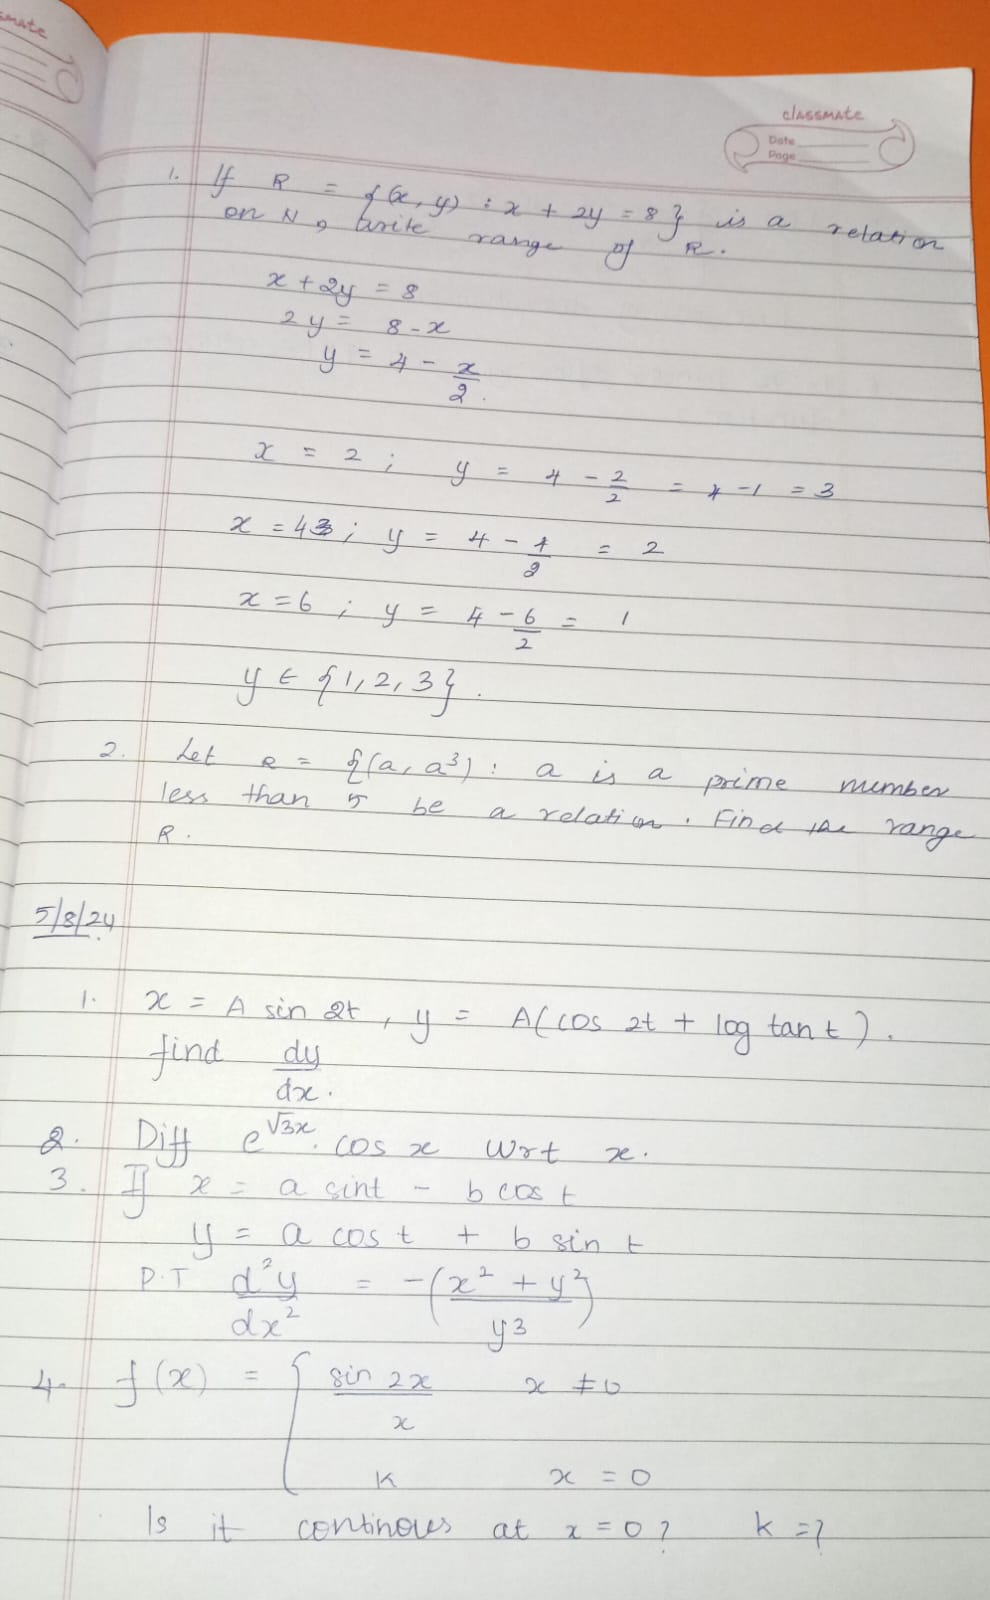 smate
classmate
Date
Page
1. If R = {(x, y) : x + 2y = 8} is a relation
on N, write range of R.
x + 2y = 8
2y = 8 - x
y = 4 - x/2.
x = 2 ; y = 4 - 2/2 = 4 - 1 = 3
x = 4 ; y = 4 - 4/2 = 2
x = 6 ; y = 4 - 6/2 = 1
y ∈ {1, 2, 3}.
2. Let R = {(a, a³) : a is a prime number
less than 5 be a relation. Find the range
R.
5/8/24
1. x = A sin 2t, y = A(cos 2t + log tan t).
find dy/dx.
2. Diff e^√3x . cos x wrt x.
3. If x = a sint - b cos t
y = a cos t + b sin t
P.T d²y/dx² = -(x² + y²/y3)
4. f(x) = { sin 2x/x x ≠ 0
k x = 0
Is it continous at x = 0 ? k = ?